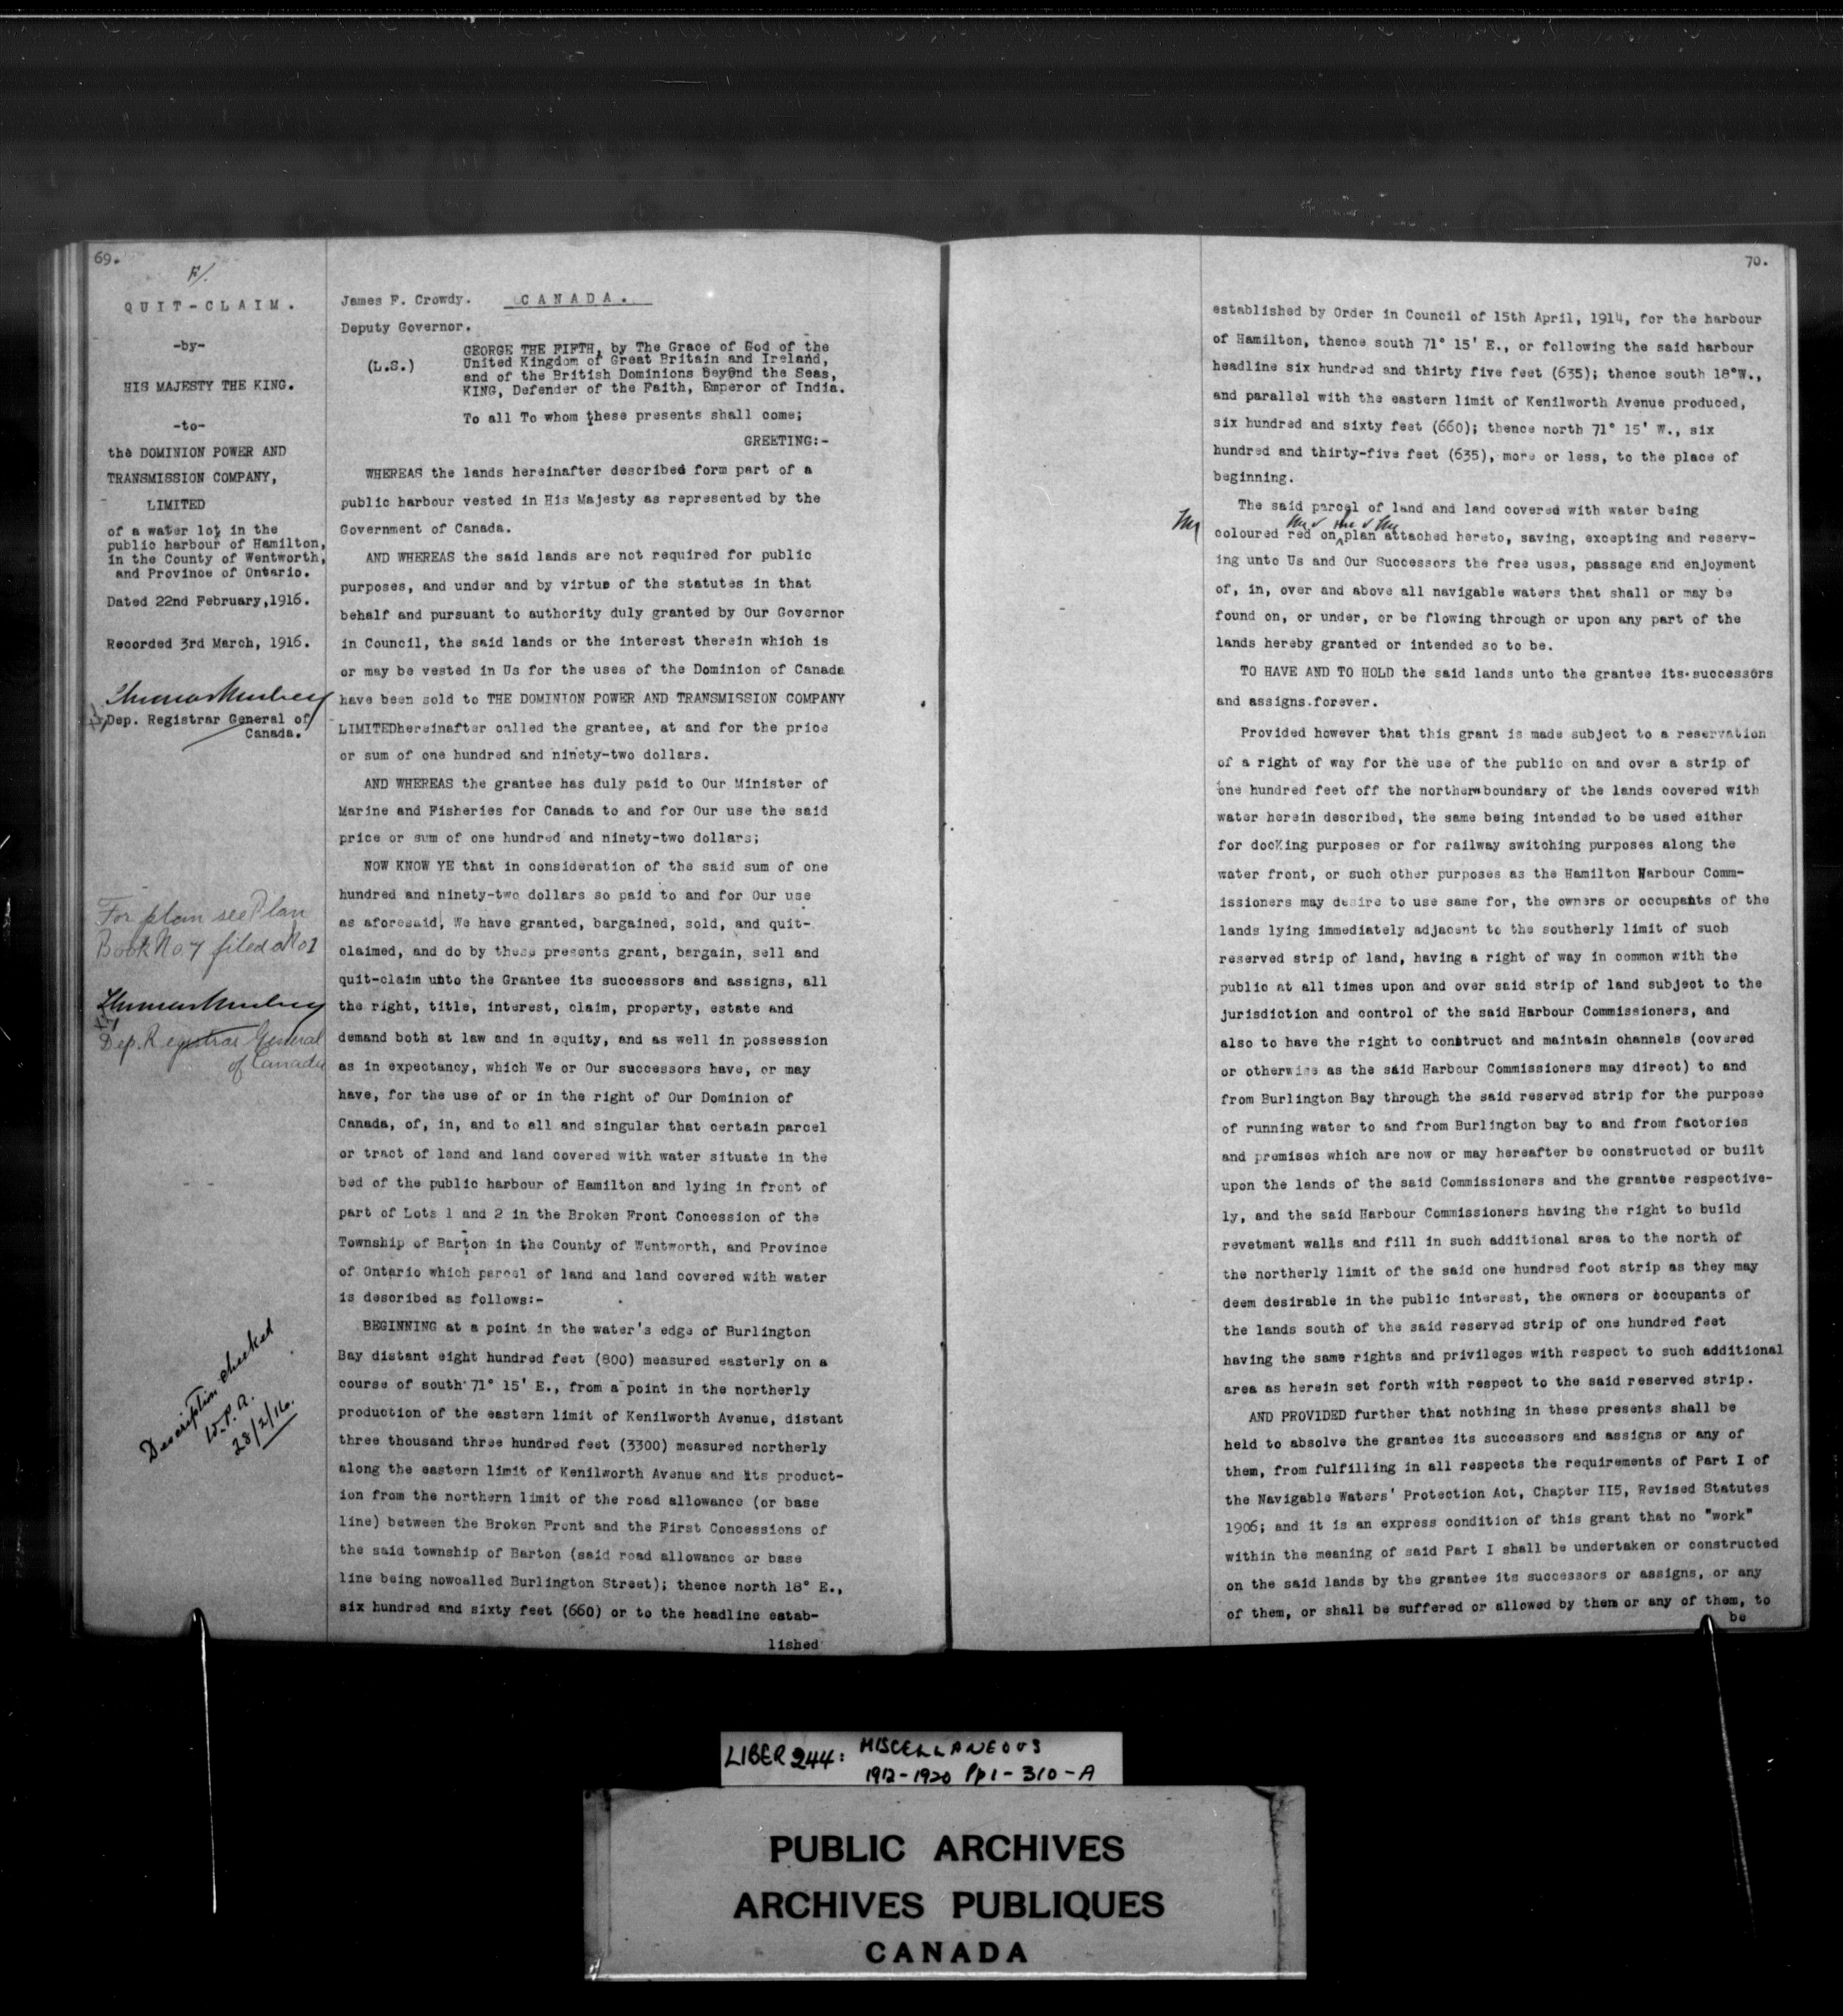 69.
F/.
QUIT-CLAIM.
-by-
HIS MAJESTY THE KING.
-to-
the DOMINION POWER AND
TRANSMISSION COMPANY,
LIMITED
of a water lot in the
public harbour of Hamilton,
in the County of Wentworth,
and Province of Ontario.
Dated 22nd February,1916.
Recorded 3rd March, 1916.
Dep. Registrar General of
Canada.
For plan see Plan
Book No. 7 filed a No 1
Dep. Registrar General
of Canada
Description checked
W.P.A.
28/2/16.
James F. Crowdy. CANADA.
Deputy Governor.
(L.S.)
GEORGE THE FIFTH, by The Grace of God of the
United Kingdom of Great Britain and Ireland,
and of the British Dominions beyond the Seas,
KING, Defender of the Faith, Emperor of India.
To all To whom these presents shall come;
GREETING:-
WHEREAS the lands hereinafter described form part of a
public harbour vested in His Majesty as represented by the
Government of Canada.
AND WHEREAS the said lands are not required for public
purposes, and under and by virtue of the statutes in that
behalf and pursuant to authority duly granted by Our Governor
in Council, the said lands or the interest therein which is
or may be vested in Us for the uses of the Dominion of Canada
have been sold to THE DOMINION POWER AND TRANSMISSION COMPANY
LIMITEDhereinafter called the grantee, at and for the price
or sum of one hundred and ninety-two dollars.
AND WHEREAS the grantee has duly paid to Our Minister of
Marine and Fisheries for Canada to and for Our use the said
price or sum of one hundred and ninety-two dollars;
NOW KNOW YE that in consideration of the said sum of one
hundred and ninety-two dollars so paid to and for Our use
as aforesaid, We have granted, bargained, sold, and quit-
claimed, and do by these presents grant, bargain, sell and
quit-claim unto the Grantee its successors and assigns, all
the right, title, interest, claim, property, estate and
demand both at law and in equity, and as well in possession
as in expectancy, which We or Our successors have, or may
have, for the use of or in the right of Our Dominion of
Canada, of, in, and to all and singular that certain parcel
or tract of land and land covered with water situate in the
bed of the public harbour of Hamilton and lying in front of
part of Lots 1 and 2 in the Broken Front Concession of the
Township of Barton in the County of Wentworth, and Province
of Ontario which parcel of land and land covered with water
is described as follows:-
BEGINNING at a point in the water's edge of Burlington
Bay distant eight hundred feet (800) measured easterly on a
course of south 71° 15' E., from a point in the northerly
production of the eastern limit of Kenilworth Avenue, distant
three thousand three hundred feet (3300) measured northerly
along the eastern limit of Kenilworth Avenue and its product-
ion from the northern limit of the road allowance (or base
line) between the Broken Front and the First Concessions of
the said township of Barton (said road allowance or base
line being nowcalled Burlington Street); thence north 18° E.,
six hundred and sixty feet (660) or to the headline estab-
lished
70.
established by Order in Council of 15th April, 1914, for the harbour
of Hamilton, thence south 71° 15' E., or following the said harbour
headline six hundred and thirty five feet (635); thence south 18°W.,
and parallel with the eastern limit of Kenilworth Avenue produced,
six hundred and sixty feet (660); thence north 71° 15' W., six
hundred and thirty-five feet (635), more or less, to the place of
beginning.
The said parcel of land and land covered with water being
coloured red on plan attached hereto, saving, excepting and reserv-
ing unto Us and Our Successors the free uses, passage and enjoyment
of, in, over and above all navigable waters that shall or may be
found on, or under, or be flowing through or upon any part of the
lands hereby granted or intended so to be.
TO HAVE AND TO HOLD the said lands unto the grantee its successors
and assigns forever.
Provided however that this grant is made subject to a reservation
of a right of way for the use of the public on and over a strip of
one hundred feet off the northern boundary of the lands covered with
water herein described, the same being intended to be used either
for docking purposes or for railway switching purposes along the
water front, or such other purposes as the Hamilton Harbour Comm-
issioners may desire to use same for, the owners or occupants of the
lands lying immediately adjacent to the southerly limit of such
reserved strip of land, having a right of way in common with the
public at all times upon and over said strip of land subject to the
jurisdiction and control of the said Harbour Commissioners, and
also to have the right to construct and maintain channels (covered
or otherwise as the said Harbour Commissioners may direct) to and
from Burlington Bay through the said reserved strip for the purpose
of running water to and from Burlington bay to and from factories
and premises which are now or may hereafter be constructed or built
upon the lands of the said Commissioners and the grantee respective-
ly, and the said Harbour Commissioners having the right to build
revetment walls and fill in such additional area to the north of
the northerly limit of the said one hundred foot strip as they may
deem desirable in the public interest, the owners or occupants of
the lands south of the said reserved strip of one hundred feet
having the same rights and privileges with respect to such additional
area as herein set forth with respect to the said reserved strip.
AND PROVIDED further that nothing in these presents shall be
held to absolve the grantee its successors and assigns or any of
them, from fulfilling in all respects the requirements of Part I of
the Navigable Waters' Protection Act, Chapter II5, Revised Statutes
1906; and it is an express condition of this grant that no "work"
within the meaning of said Part I shall be undertaken or constructed
on the said lands by the grantee its successors or assigns, or any
of them, or shall be suffered or allowed by them or any of them, to
be
LIBER 244: MISCELLANEOUS
1912-1920 Pp 1-310-A
PUBLIC ARCHIVES
ARCHIVES PUBLIQUES
CANADA